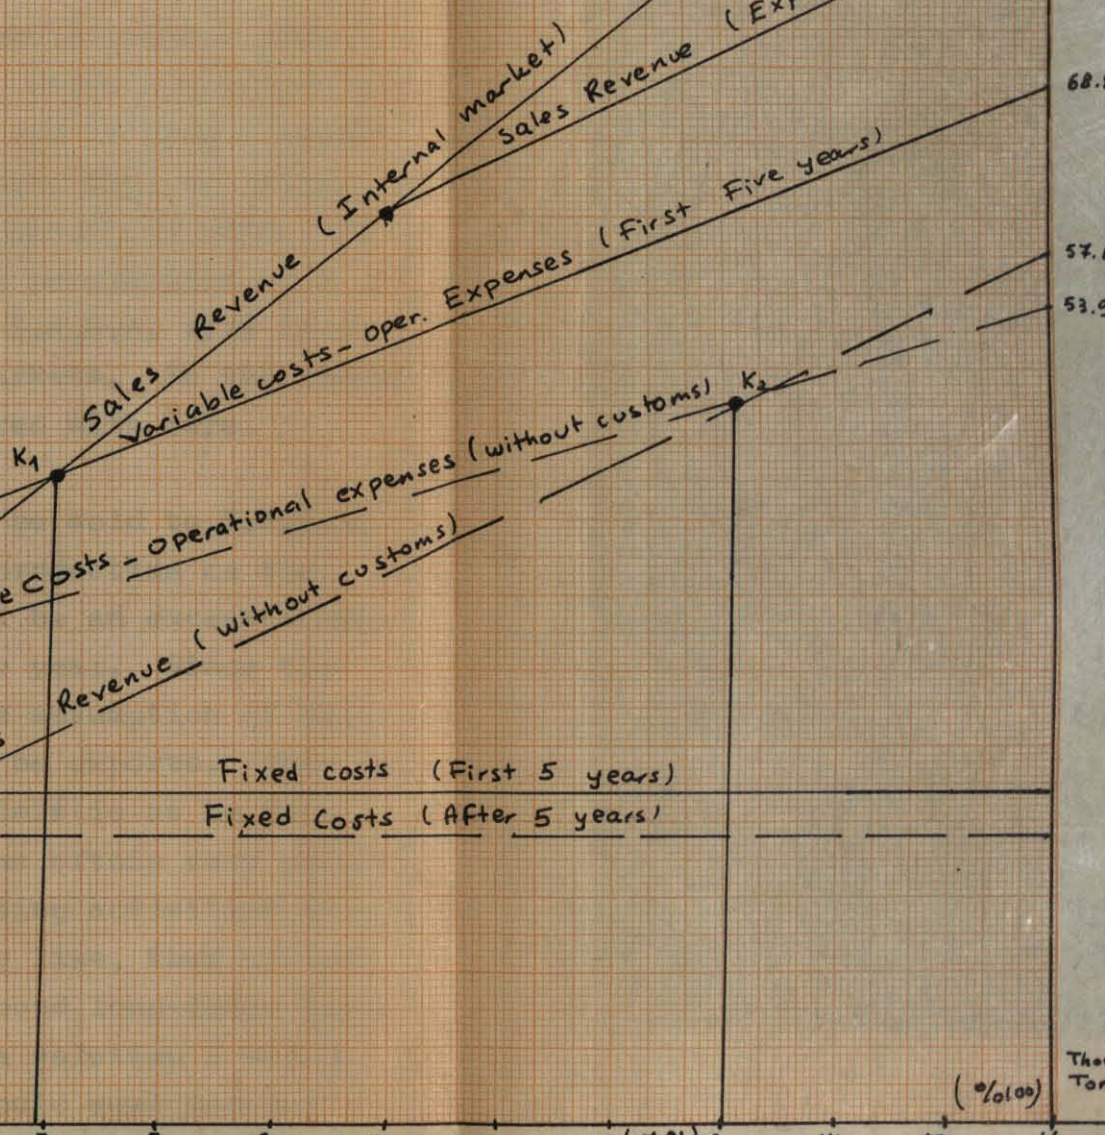 Sales Revenue (Internal market)
Sales Revenue (Exp
68.
Variable costs - oper. Expenses (First Five years)
57.
53.9
K1
K2
e Costs - operational expenses (without customs)
Revenue (without customs)
Fixed costs (First 5 years)
Fixed Costs (After 5 years)
(%100)
Thou
Ton